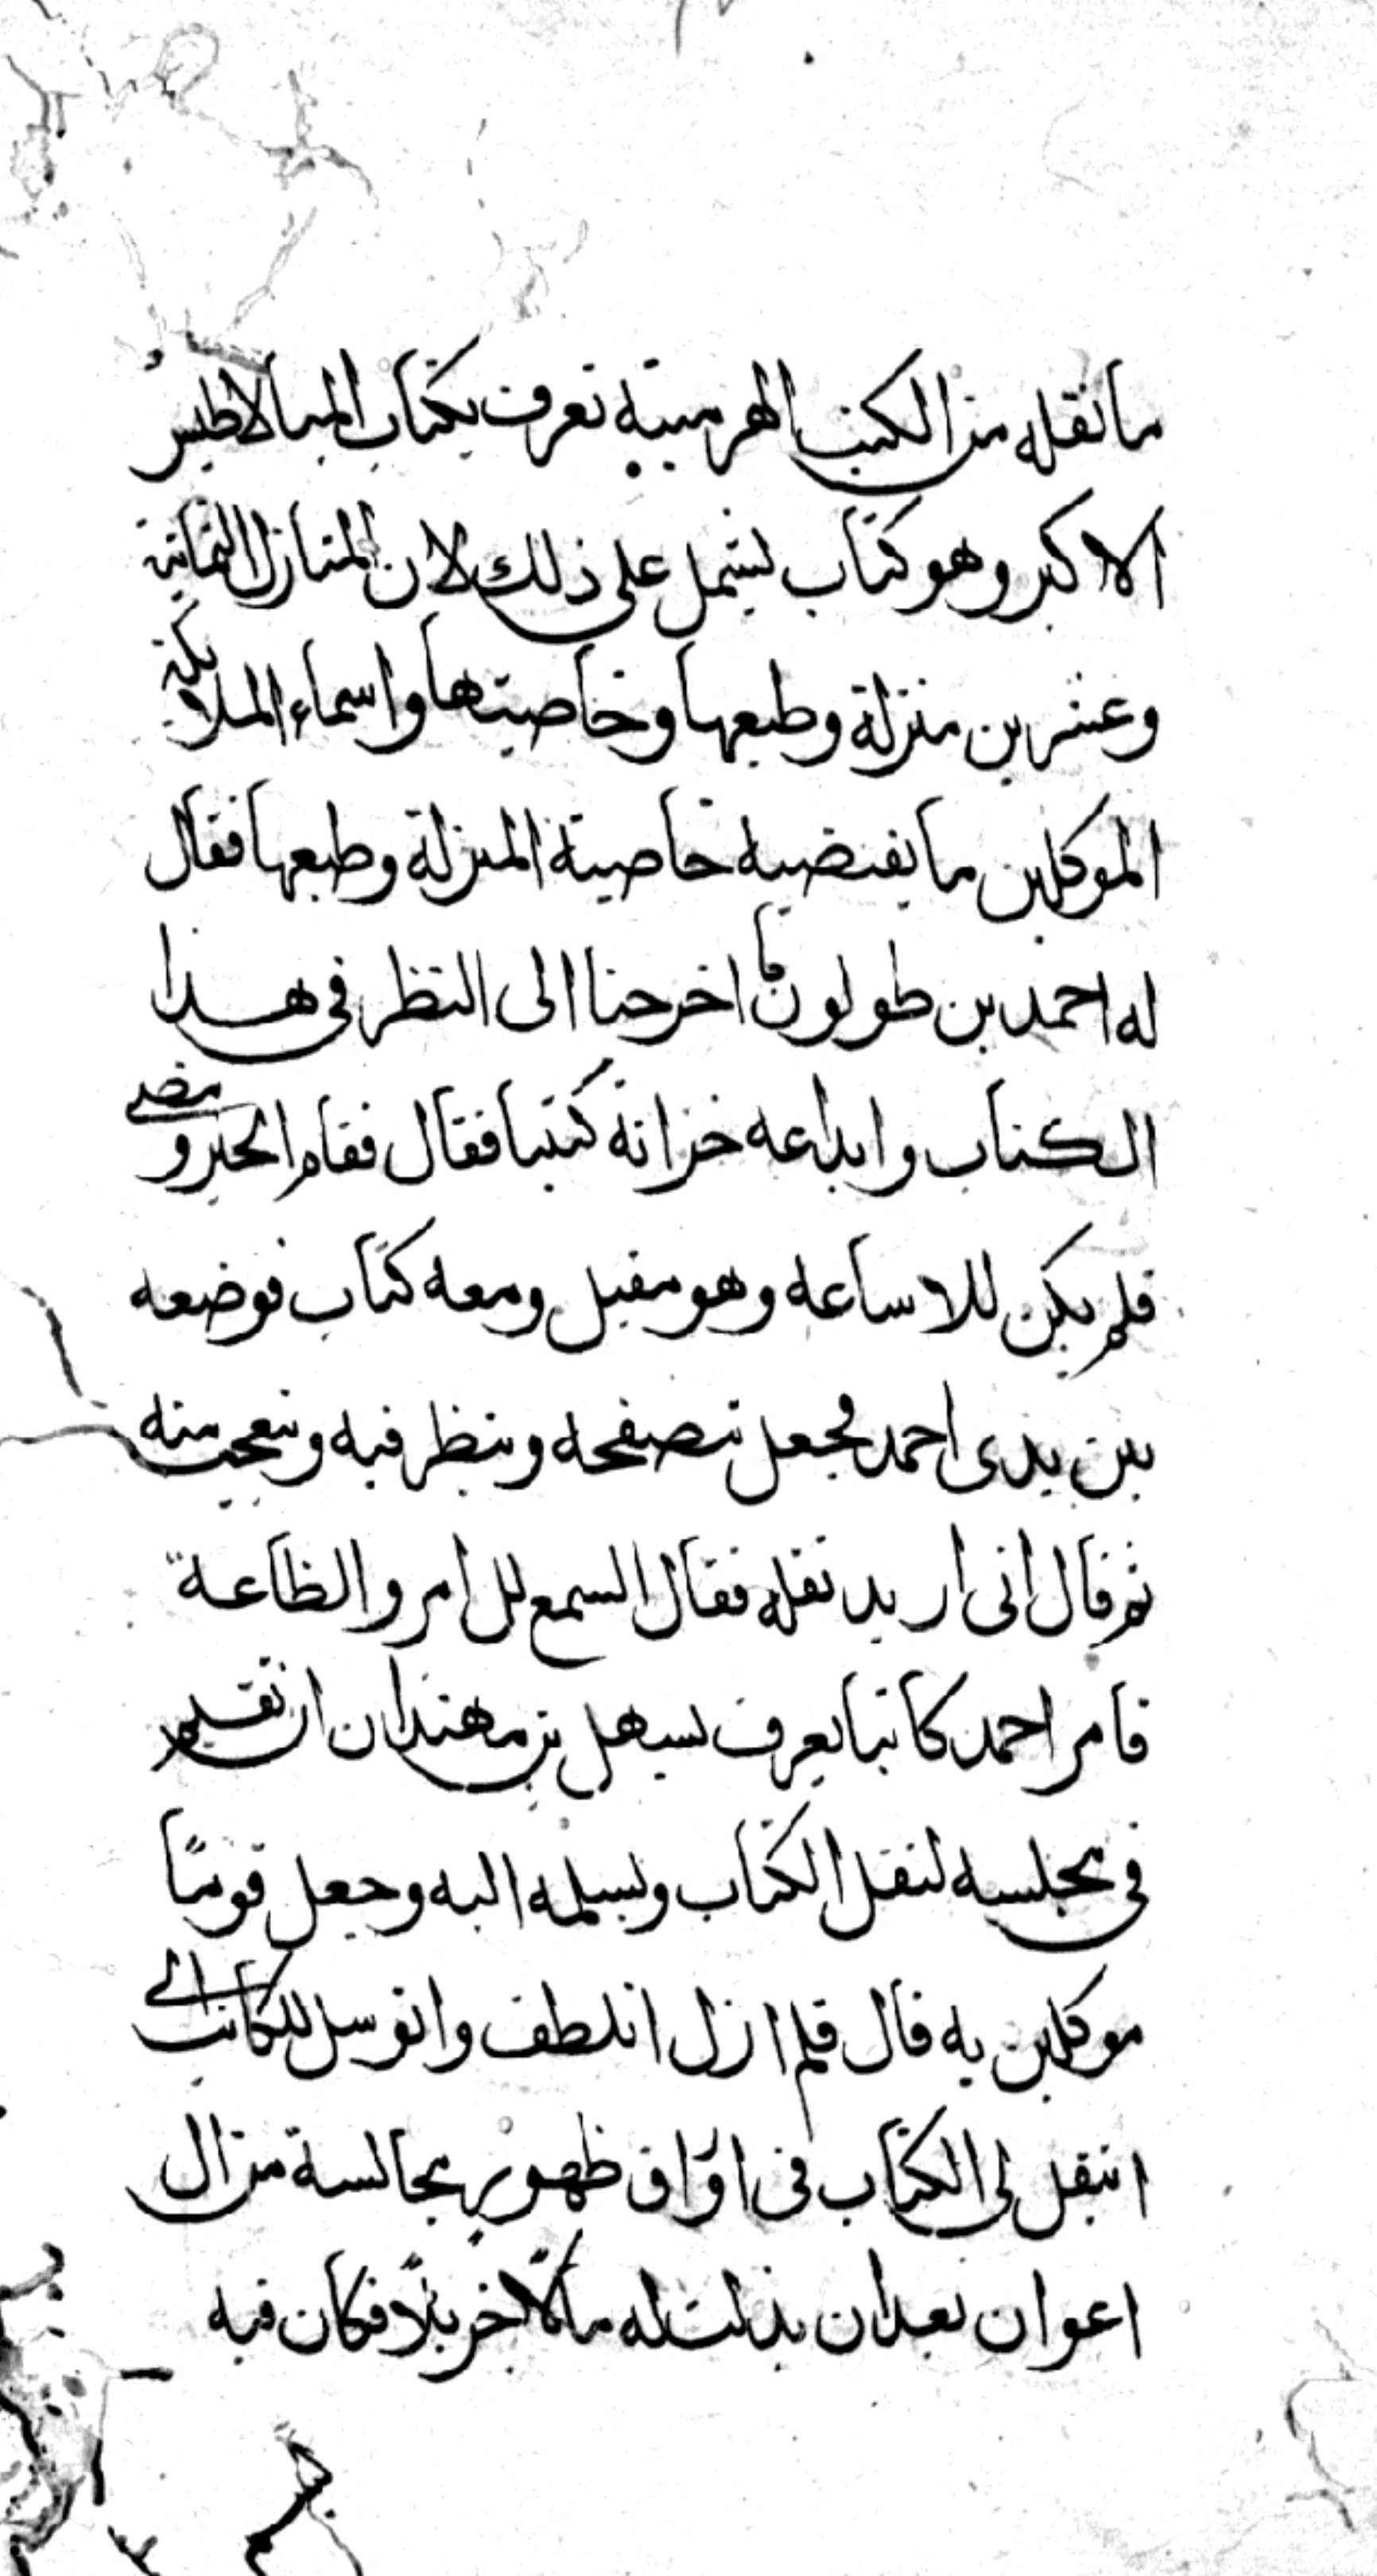 ما نقله من الكتب الهرمسية تعرف بكتاب الميالاطيس
الاكبر وهو كتاب يشمل على ذلك لان المنازل الثمانية
وعشرين منزلة وطبعها وخاصيتها واسماء الملايكة
الموكلين ما يقتضيه خاصية المنزلة وطبعها فقال
له احمد بن طولون ما اخرجنا الى النظر في هذا
الكتاب وايداعه خزانة كتبنا فقال فقام الحبر ومضى
فلم يكن للا ساعه وهو مقبل ومعه كتاب فوضعه
بين يدى احمد فجعل يتصفحه وينظر فيه ويتعجب منه
ثم قال انى اريد نقله فقال السمع لل امر والظاعة
فامر احمد كاتبا يعرف بسهل بن مهندان ان يقيم
في مجلسه لنقل الكتاب ويسلمه اليه وجعل قومًا
موكلين به قال فلم ازل اتلطف واتوسل للكاتب الى
انتقل لى الكتاب فى اوراق ظهور مجالسة من ال
اعوان بعد ان بذلت له مالًا جزيلًا فكان فيه